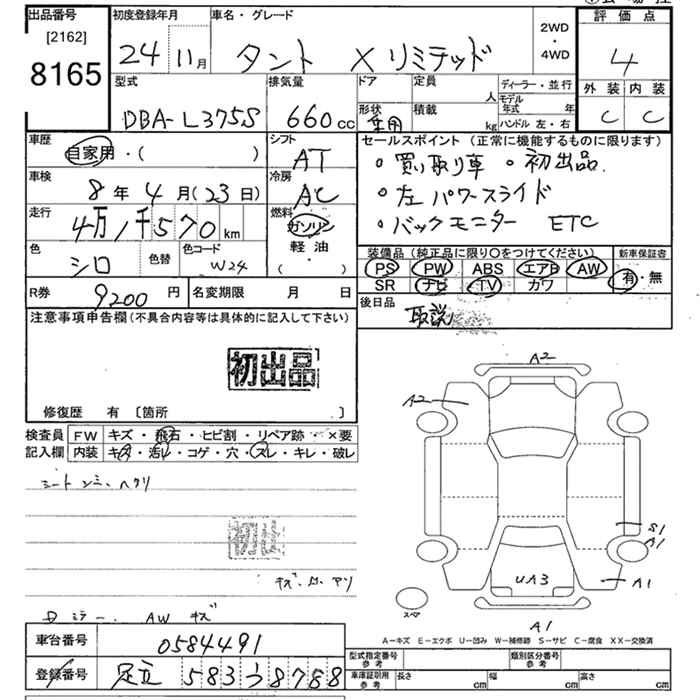 出品番号
[2162]
8165
初度登録年月
24 11月
車名・グレード
タント Xリミテッド
2WD
・
4WD
評価点
4
外装 内装
C C
型式
DBA-L375S
排気量
660cc
ドア 定員 人
形状 積載 kg
乗用
ディーラー・並行
モデル年式 年
ハンドル 左・右
車歴
自家用・( )
シフト
AT
車検
8年4月(23日)
冷房
AC
走行
4万1千570km
燃料
ガソリン
軽油
( ・ )
色
シロ
色替
色コード
W24
セールスポイント(正常に機能するものに限ります)
・買い取り車 ・初出品.
・左パワースライド
・バックモニター ETC
装備品(純正品に限り○をつけてください)
PS PW ABS エアB AW
SR ナビ TV カワ
新車保証書
有・無
R券 9200円
名変期限 月 日
後日品
取説
注意事項申告欄(不具合内容等は具体的に記入して下さい)
初出品
修復歴 有 〔箇所 〕
検査員記入欄
FW キズ・飛石・ヒビ割・リペア跡・×要
内装 キズ・汚レ・コゲ・穴・スレ・キレ・破レ
A2
A2
S1
A1
A1
UA3
A1
スペア
A-キズ E-エクボ U-凹み W-補修跡 S-サビ C-腐食 XX-交換済
車台番号
0584491
登録番号
足立 583 う 8788
型式指定番号
参考
類別区分番号
参考
車庫証明用
参考
長さ cm 幅 cm 高さ cm